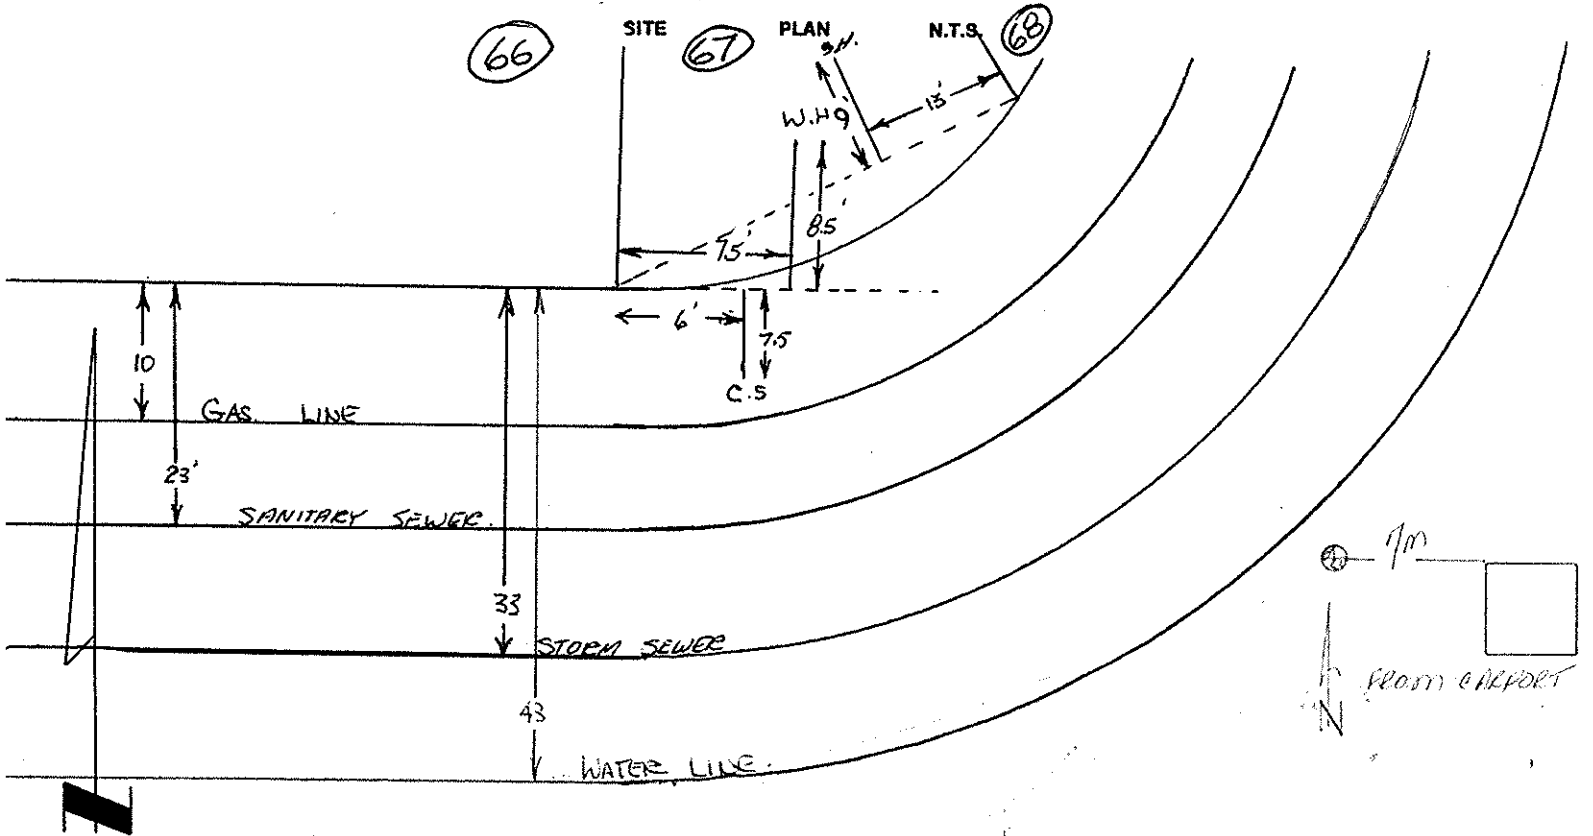 SITE PLAN N.T.S.
66 67 68
S.H.
W.H 9'
13'
8.5'
7.5'
6'
7.5
C.S
10
GAS LINE
23'
SANITARY SEWER.
33
STORM SEWER
43
WATER LINE.
7m
FROM CARPORT
N